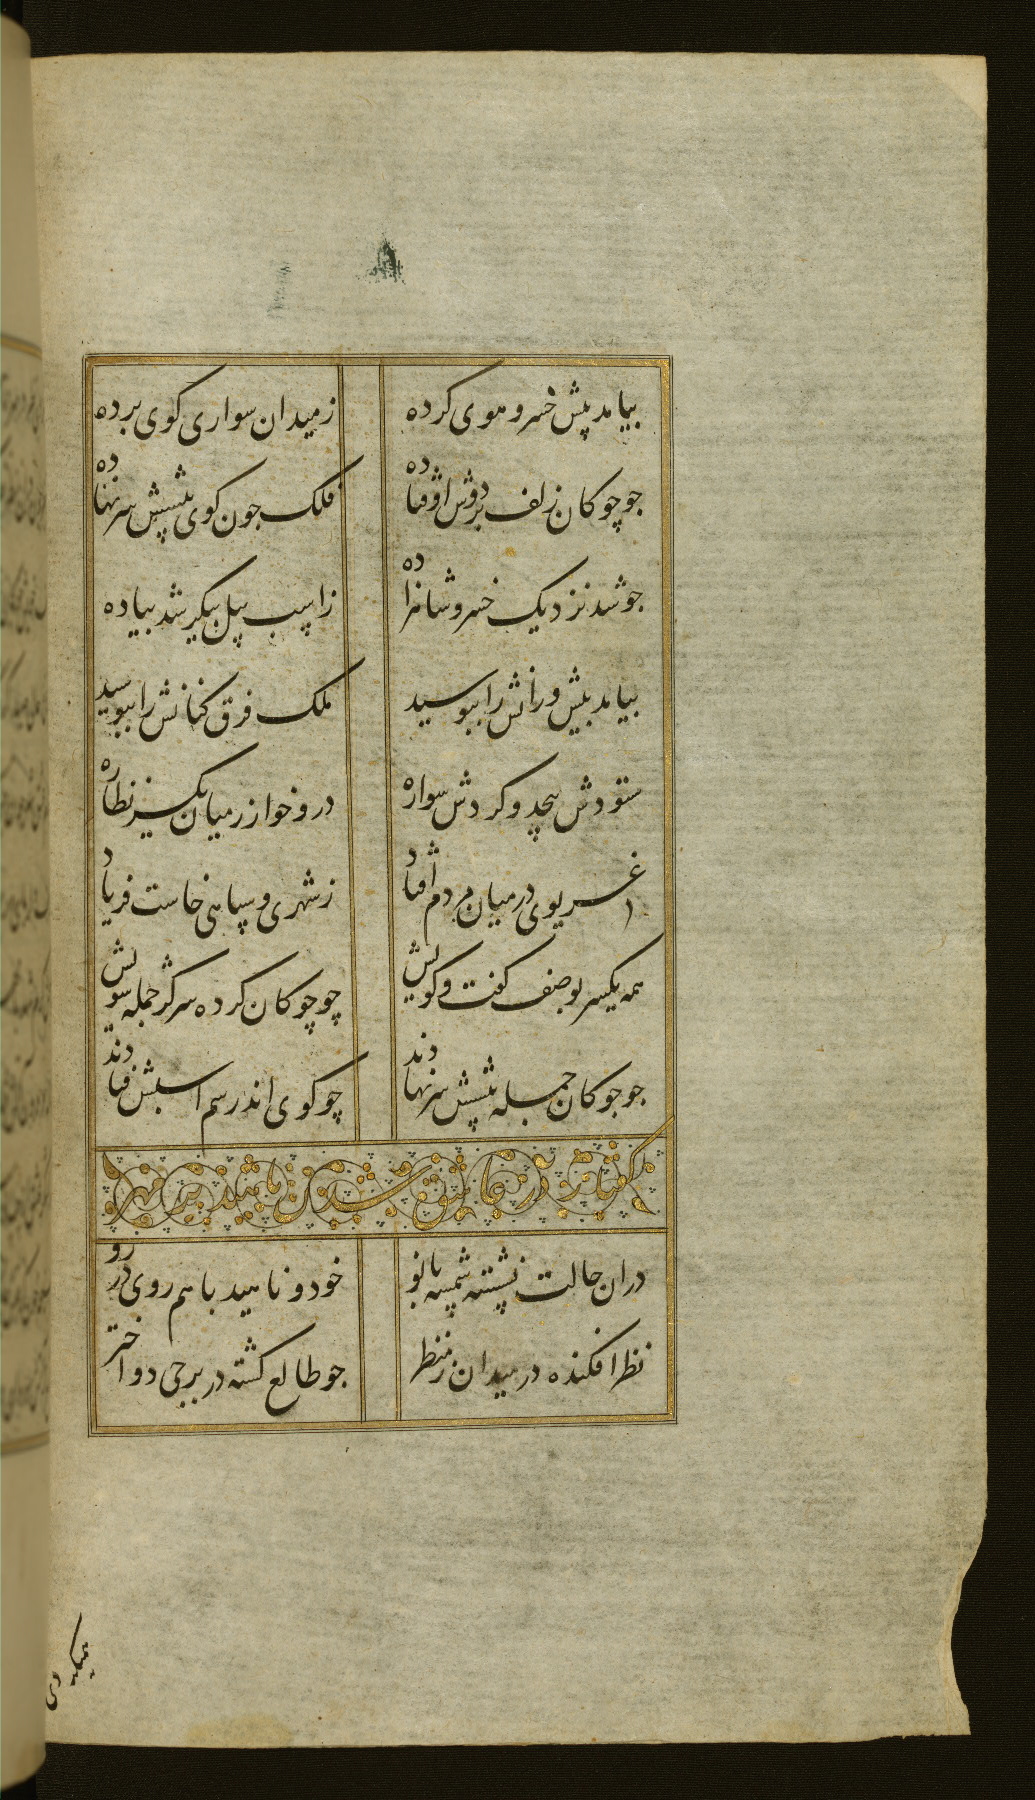 بیامد پیش خسرو موی کرده زمیدان سواری کوی برده
جو چوکان زلف بردوش اوفتاده فلک جون کوی پیشش سر نهاده
جو شد نزدیک خسرو شاهزاده ز اسپ پیل پیکر شد پیاده
بیامد پیش و رانش را ببوسید ملک فرق کتانش را ببوسید
ستودش بیحد و کردش سواره در و خوار زمیان نیز نظاره
غریوی در میان مردم افتاد ز شهری و سپاهی خاست فریاد
همه یکسر بوصف کفت و کویش چو چوکان کرده سر کژ جمله سویش
جو جوکان جمله پیشش سر نهادند چو کوی اندر سم اسپش فتادند
کفتار در عاشق شدن ناهید بر مهر
دران حالت نشسته شمسه بانو خود و ناهید با هم روی در رو
نظر افکنده در میدان ز منظر جو طالع کشته در برجی دو اختر